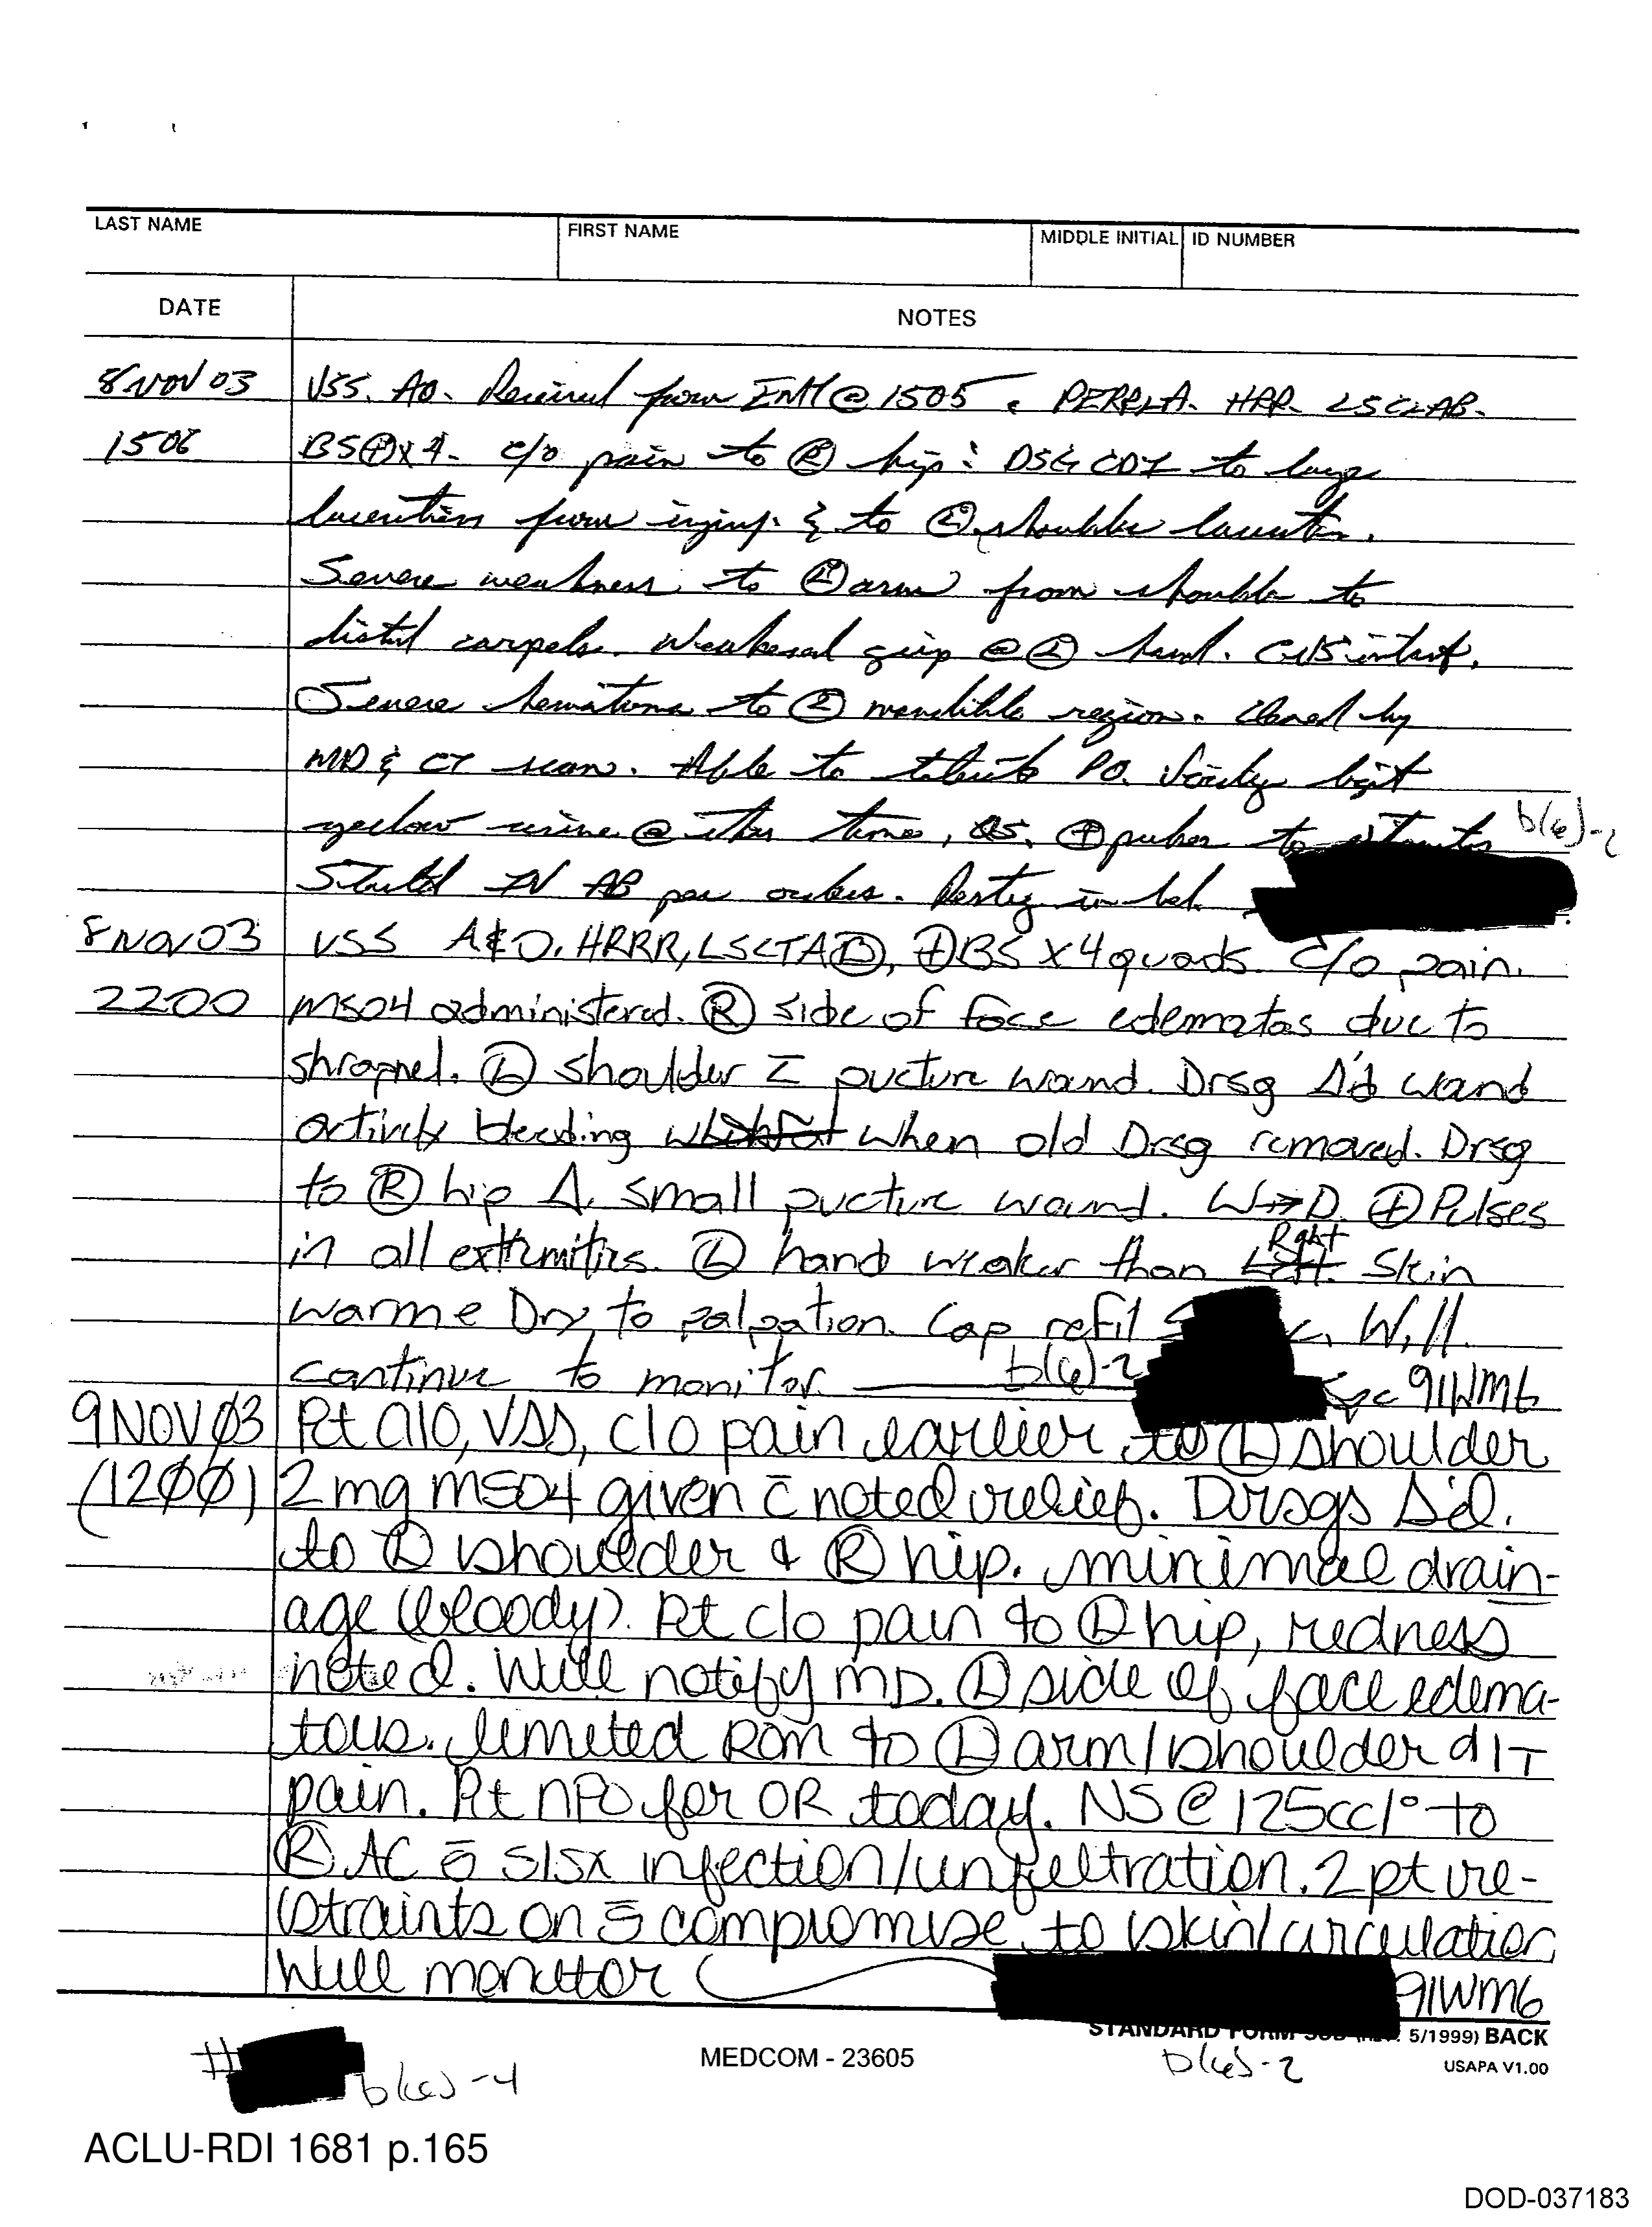 LAST NAME FIRST NAME MIDDLE INITIAL ID NUMBER
DATE NOTES
8 NOV 03 VSS. AO. Received from EMT @ 1505. PERRLA. HRR. LSCTAB.
1506 BS⊕x4. c/o pain to Ⓡ hip: DSG CDI to large
laceration from injury. & to Ⓛ shoulder laceration.
Severe weakness to Ⓛ arm from shoulder to
distal carpels. Weakened grip @ Ⓛ hand. CMS intact.
Severe hematoma to mandible region. Cleared by
MD & CT scan. Able to tolerate PO. Voiding
yellow urine @ this time, QS. ⊕ pulses to extremities b(6)-2
Started IV AB per orders. Resting in bed.
8 NOV 03 VSS A&O. HRRR, LSCTAⒷ, ⊕BS x 4 quads. C/o pain.
2200 MSO4 administered. Ⓡ side of face edematas due to
shrapnel. Ⓛ shoulder c̄ pucture wound. Drsg Δ'd wand
actively bleeding when old Drsg removed. Drsg
to Ⓡ hip Δ. small pucture wound. W→D. ⊕ Pulses
in all extremitics. Ⓛ hand weaker than Left Right. Skin
warme Dry to palpation. Cap refil Will
continue to monitor. b(6)-2 91WM6
9 NOV 03 Pt A/O, VSS, c/o pain earlier to Ⓛ shoulder
(1200) 2 mg MSO4 given c̄ noted relief. Drsgs Δ'd.
to Ⓛ shoulder & Ⓡ hip. minimal drain-
age (bloody). Pt c/o pain to Ⓛ hip, redness
noted. Will notify MD. Ⓛ side of face edema-
tous. limited ROM to Ⓛ arm/shoulder d/T
pain. Pt NPO for OR today. NS @ 125cc/° to
Ⓡ AC s̄ s/sx infection/unfiltration. 2 pt re-
straints on s̄ compromise to skin/circulation
Will monitor 91WM6
STANDARD FORM 5/1999) BACK
b(6)-2
USAPA V1.00
# b(6)-4
MEDCOM - 23605
ACLU-RDI 1681 p.165
DOD-037183